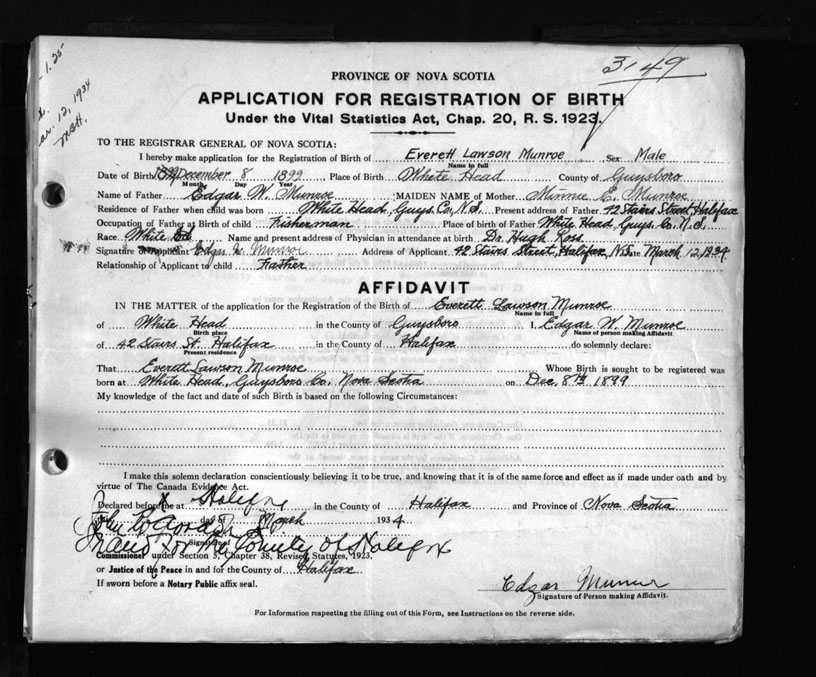 - 1.25
Mar. 12, 1934
3149
PROVINCE OF NOVA SCOTIA
APPLICATION FOR REGISTRATION OF BIRTH
Under the Vital Statistics Act, Chap. 20, R. S. 1923.
TO THE REGISTRAR GENERAL OF NOVA SCOTIA:
I hereby make application for the Registration of Birth of Everett Lawson Munroe Sex Male
Name in full
Date of Birth December 8 1899 Place of Birth White Head County of Guysboro
Month Day Year
Name of Father Edgar W. Munroe MAIDEN NAME of Mother Minnie E. Munroe
Residence of Father when child was born White Head, Guys. Co, N.S. Present address of Father 42 Stairs Street, Halifax
Occupation of Father at Birth of child Fisherman Place of birth of Father White Head Guys. Co. N.S.
Race White Name and present address of Physician in attendance at birth Dr Hugh Ross
Signature of Applicant Edgar W. Munroe Address of Applicant 42 Stairs Street, Halifax N.S. Date March 12, 1934.
Relationship of Applicant to child Father
AFFIDAVIT
IN THE MATTER of the application for the Registration of the Birth of Everett Lawson Munroe
Name in full
of White Head in the County of Guysboro I, Edgar W. Munroe
Birth place Name of person making Affidavit
of 42 Stairs St. Halifax in the County of Halifax do solemnly declare:
Present residence
That Everett Lawson Munroe Whose Birth is sought to be registered was
born at White Head, Guysboro Co. Nova Scotia on Dec. 8th 1899
My knowledge of the fact and date of such Birth is based on the following Circumstances:
I make this solemn declaration conscientiously believing it to be true, and knowing that it is of the same force and effect as if made under oath and by
virtue of The Canada Evidence Act.
Declared before me at Halifax in the County of Halifax and Province of Nova Scotia
day of March 1934
Signature of
In and For the County of Halifax
Commissioner under Section 5, Chapter 38, Revised Statutes, 1923,
or Justice of the Peace in and for the County of Halifax
If sworn before a Notary Public affix seal.
Edgar Munroe
Signature of Person making Affidavit.
For Information respecting the filling out of this Form, see Instructions on the reverse side.